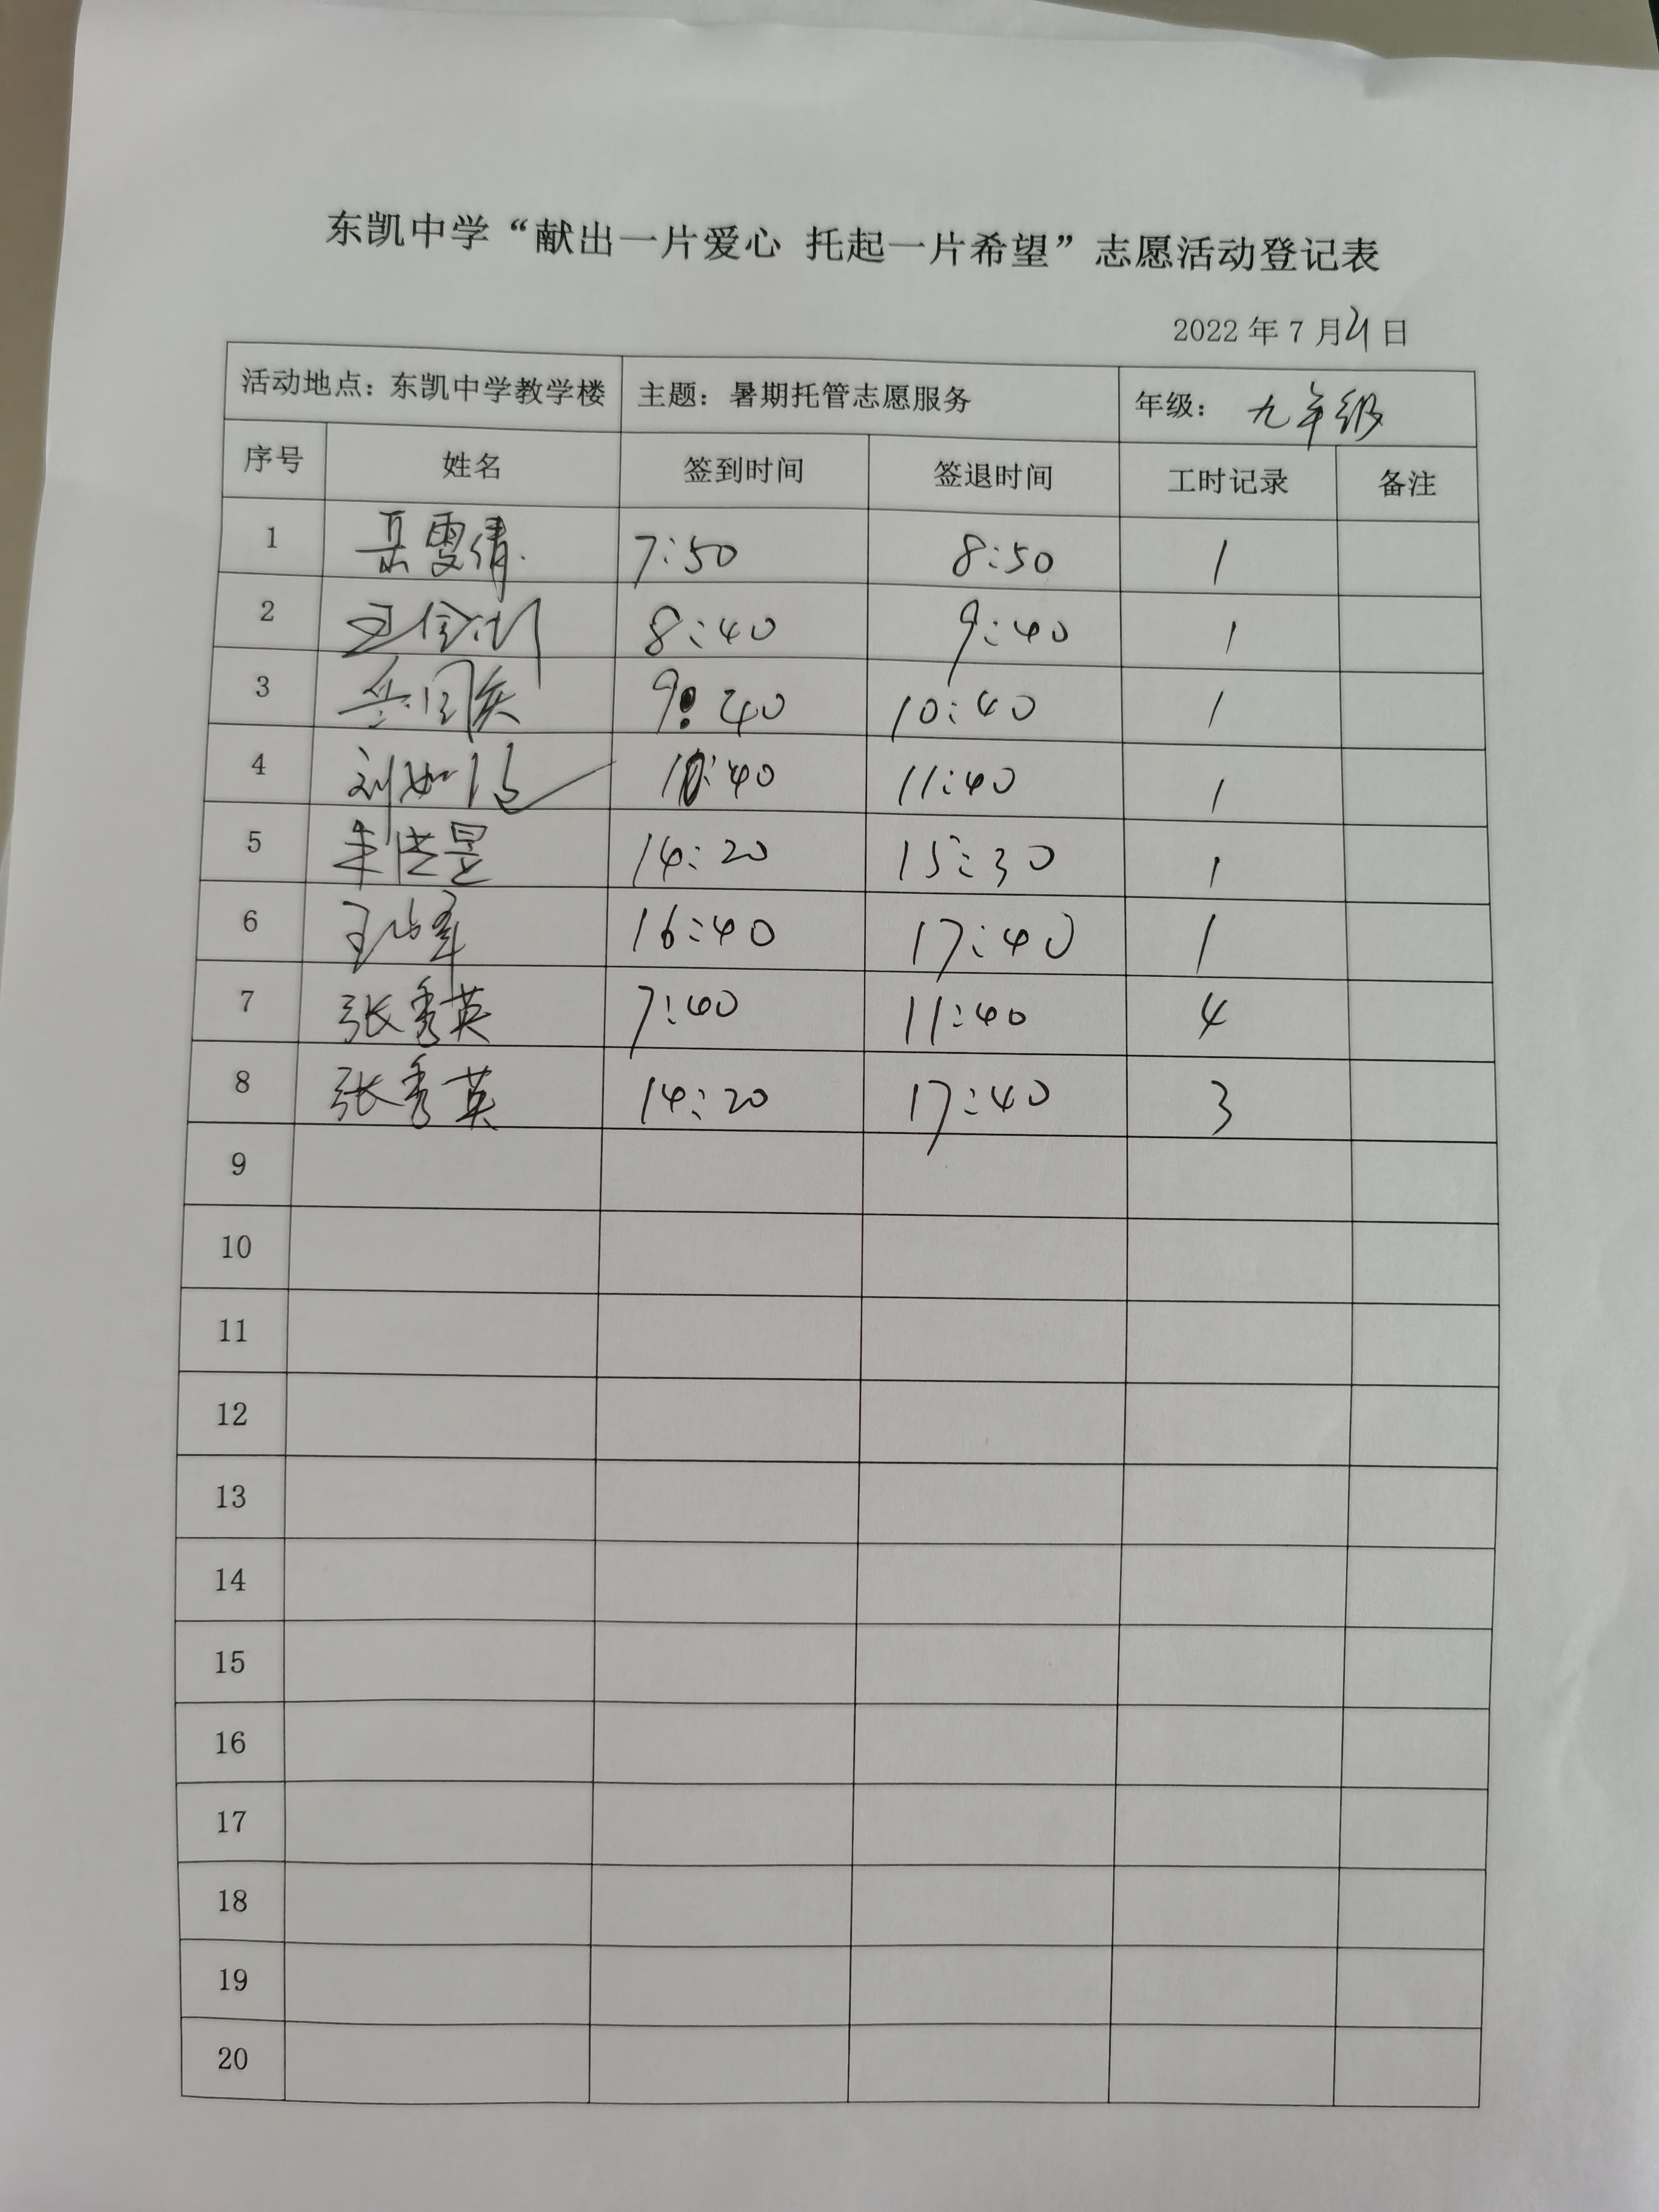 东凯中学“献出一片爱心 托起一片希望”志愿活动登记表
2022 年 7 月 21 日
活动地点：东凯中学教学楼 主题：暑期托管志愿服务 年级：九年级
序号 姓名 签到时间 签退时间 工时记录 备注
1 岳雯倩 7:50 8:50 1
2 8:40 9:40 1
3 9:40 10:40 1
4 刘如 10:40 11:40 1
5 朱洪昱 14:20 15:30 1
6 王 军 16:40 17:40 1
7 张秀英 7:40 11:40 4
8 张秀英 14:20 17:40 3
9
10
11
12
13
14
15
16
17
18
19
20